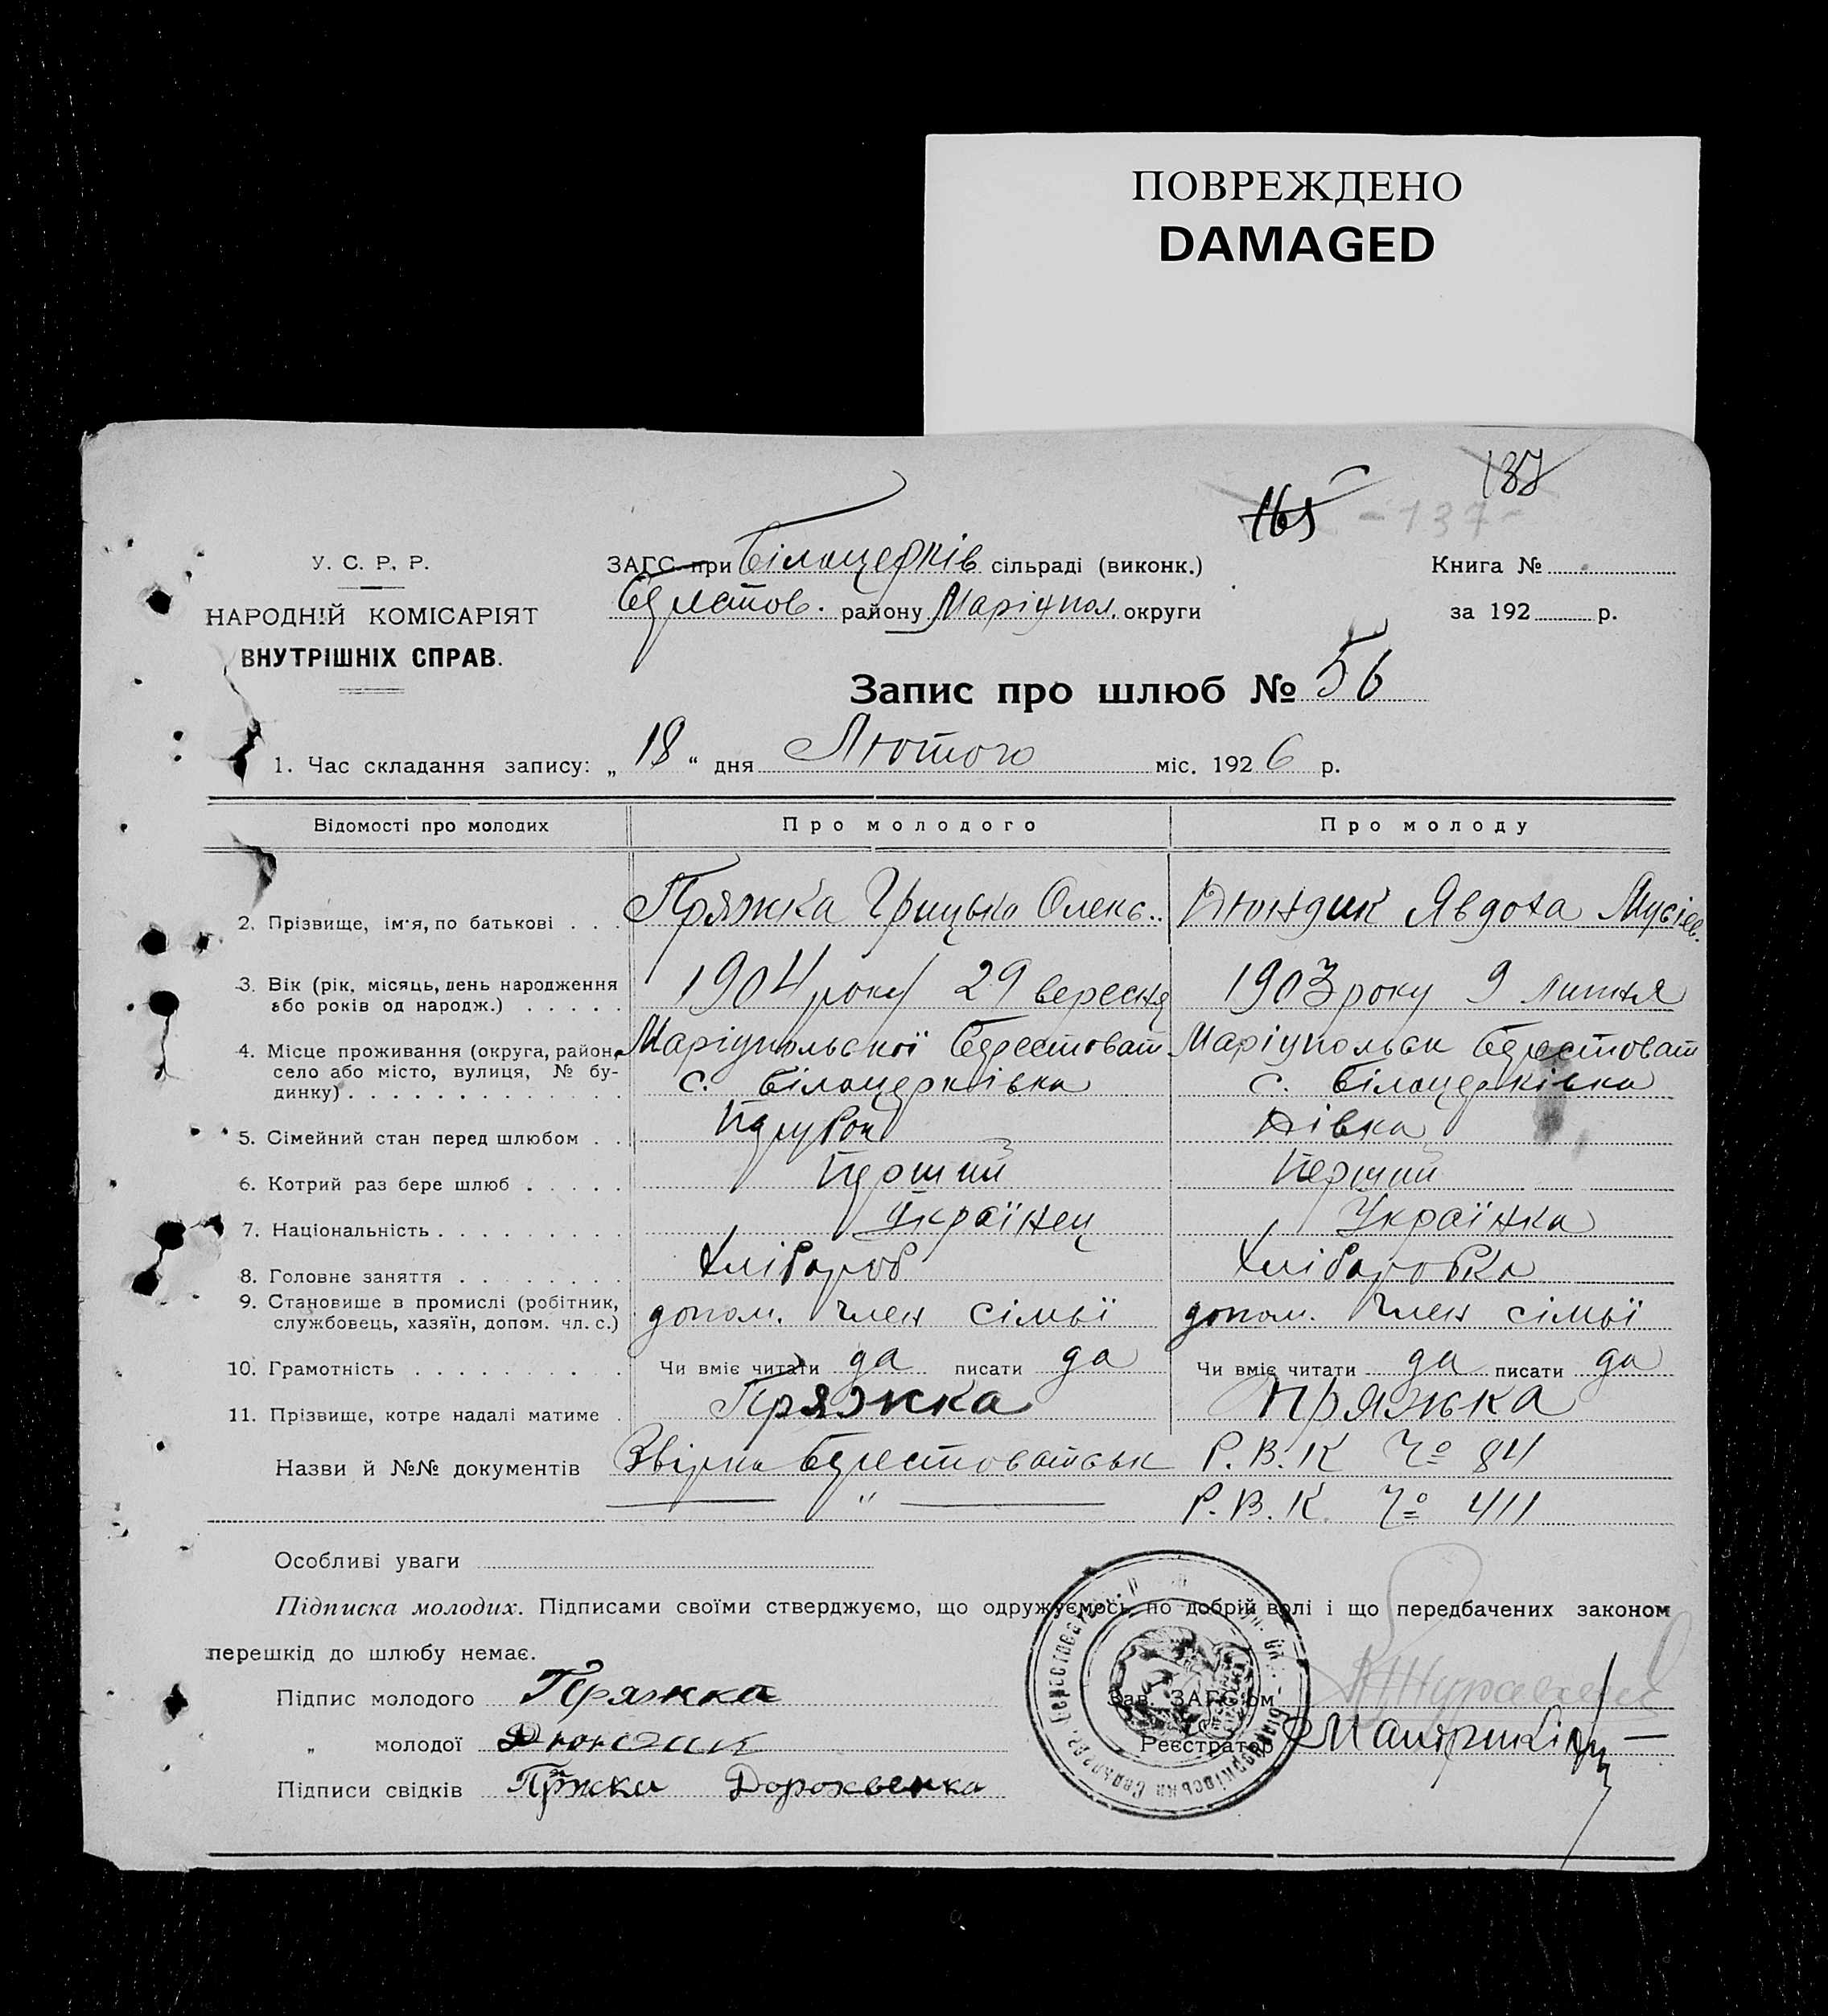 ПОВРЕЖДЕНО
DAMAGED
187
165 - 137 -
У. С. Р. Р.
НАРОДНІЙ КОМІСАРІЯТ
ВНУТРІШНІХ СПРАВ.
ЗАГС при Білоцерків сільраді (виконк.)
Берестов. району Маріупол. округи
Книга №
за 192 р.
Запис про шлюб № 56
1. Час складання запису: „ 18 “ дня Лютого міс. 1926 р.
Відомості про молодих Про молодого Про молоду
2. Прізвище, ім'я, по батькові . . . Пряжка Грицько Олекс.. Дюндик Явдоха Мусіев.
3. Вік (рік, місяць, день народження або років од народж.) . . . . . 1904 року 29 вересня 1903 року 9 липня
4. Місце проживання (округа, район, село або місто, вулиця, № будинку) . . . . Маріупольскої Берестоват с. Білоцерківка Маріупольск Берестоват с. Білоцерківка
5. Сімейний стан перед шлюбом . . Парубок Дівка
6. Котрий раз бере шлюб . . . . . Перший Перший
7. Національність . . . . . . . . . Українец Українка
8. Головне заняття . . . . . . . . Хлібороб Хліборобка
9. Становище в промислі (робітник, службовець, хазяїн, допом. чл. с.) допом. член сімьї допом. член сімьї
10. Грамотність . . . . . . . . . . Чи вміє читати да писати да Чи вміє читати да писати да
11. Прізвище, котре надалі матиме . Пряжка Пряжька
Назви й №№ документів Звірка Берестоватськ Р.В.К № 84
" Р.В.К. № 411
Особливі уваги
Підписка молодих. Підписами своїми стверджуємо, що одружуємось по добрій волі і що передбачених законом
перешкід до шлюбу немає.
Підпис молодого Пряжка
Зав. ЗАГС'ом
„ молодої Дюндик
Реєстратор
Підписи свідків Пряжка Дорохвенка